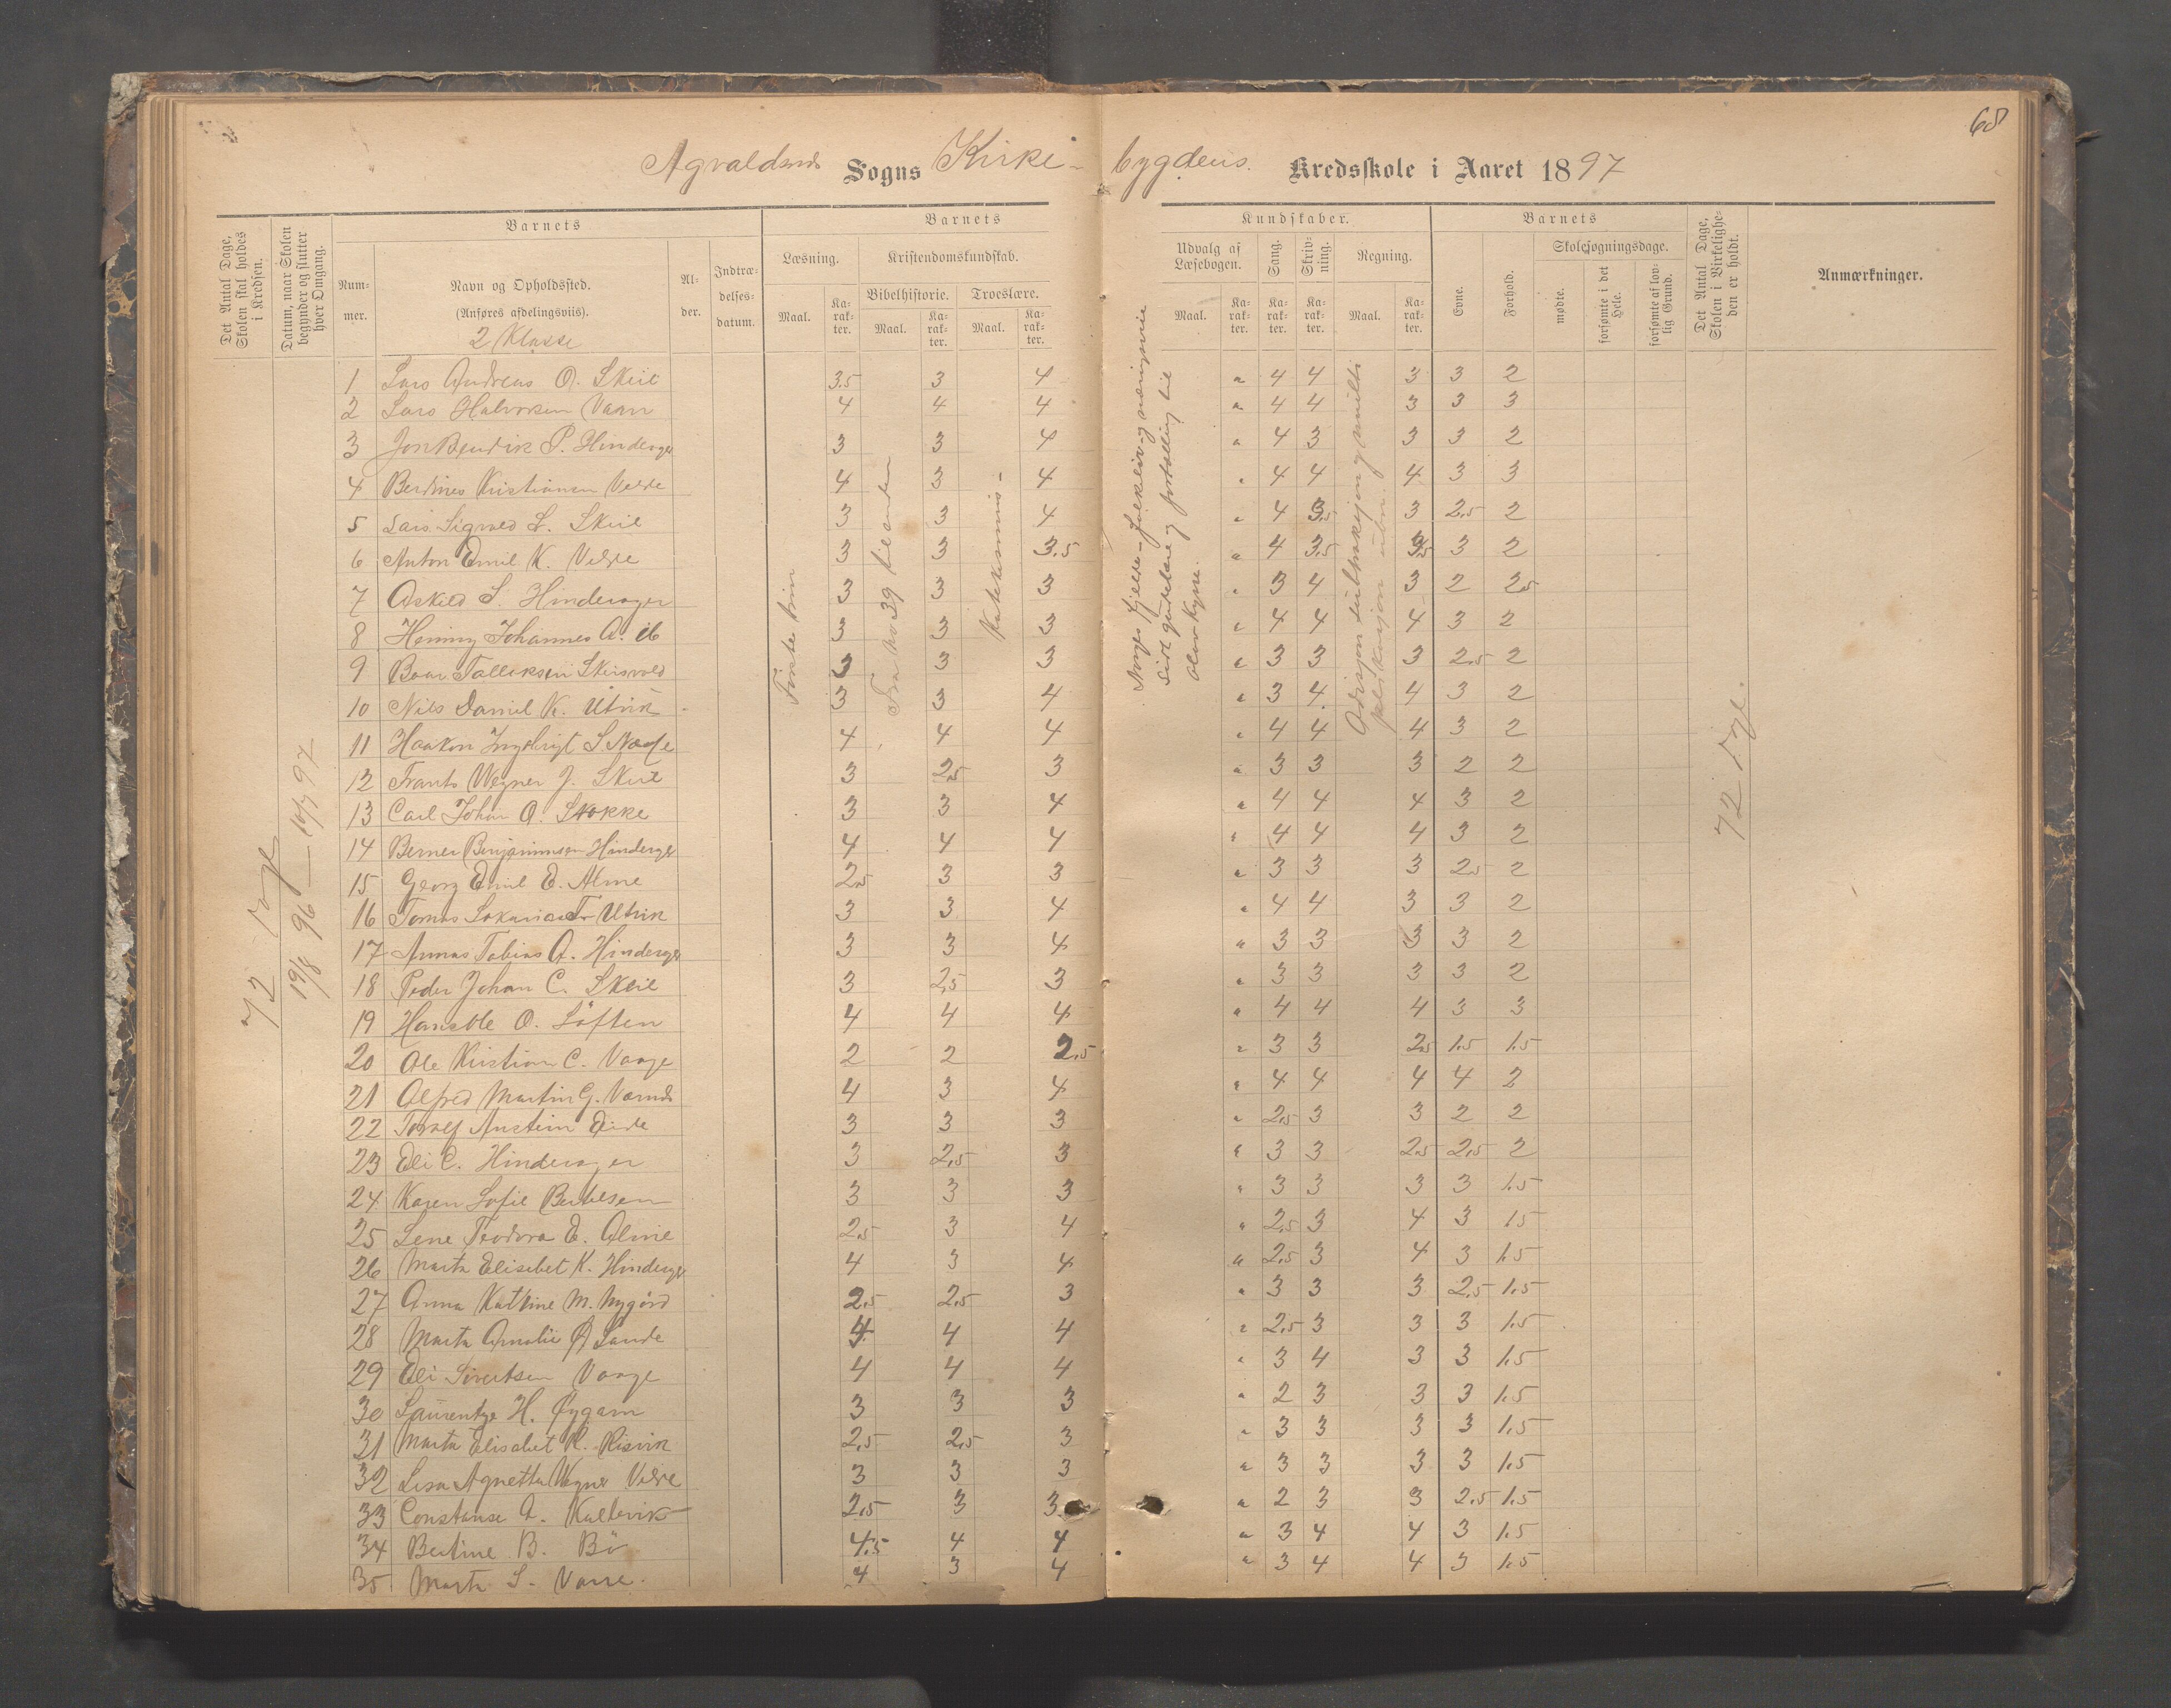 68
Agvaldsnes Sogns Kirke- bygdens. Kredsskole i Aaret 1897
Det Antal Dage, Skolen skal holdes i Kredsen.
Datum, naar Skolen begynder og slutter hver Omgang.
Barnets
Barnets
Kundskaber.
Barnets
Det Antal Dage, Skolen i Virkeligheden er holdt.
Anmærkninger.
Nummer.
Navn og Opholdssted.
(Anføres afdelingsviis).
2 Klasse
Alder.
Indtrædelsesdatum.
Læsning.
Kristendomskundskab.
Bibelhistorie.
Troeslære.
Maal.
Karakter.
Maal.
Karakter.
Maal.
Karakter.
Udvalg af Læsebogen.
Sang.
Skrivning.
Regning.
Evne.
Forhold.
Skolesøgningsdage.
Maal.
Karakter.
Karakter.
Karakter.
Maal.
Karakter.
mødte.
forsømte i det Hele.
forsømte af lovlig Grund.
72
19/8 96 —
Fra No 39 til enden
72
1 Lars Andreas O. Skeie 3.5 3 4 " 4 4 3 3 2
2 Lars Halvorsen Vaan 4 4 4 " 4 4 3 3 3
3 Jon Bendik P. Hinderager 3 3 4 " 4 3 3 3 2
4 Berdines Kristiansen Velde 4 3 4 " 4 4 4 3 3
5 Lars Sigvald L. Skeie 3 3 4 " 4 3.5 3 2.5 2
6 Anton Emil K. Velde 3 3 3.5 " 4 3.5 3.5 3 2
7 Askild S. Hinderager 3 3 3 " 3 4 3 2 2.5
8 Hening Johannes A. ib 3 3 3 " 4 4 4 3 2
9 Baar Tallaksen Skeisvold 3 3 3 " 3 3 3 2.5 2
10 Nils Daniel K. Utvik 3 3 4 " 3 4 4 3 2
11 Haakon Ingebrigt S. 4 4 4 " 4 4 4 3 2
12 Frants Wegner J. Skeie 3 2.5 3 " 3 3 3 2 2
13 Carl Johan A. Stokke 3 3 4 " 4 4 4 3 2
14 Berner Benjaminsen Hinderager 4 4 4 " 4 4 4 3 2
15 Georg Emil E. Alme 2.5 3 3 " 3 3 3 2.5 2
16 Tomas Sakarias T. Utvik 3 3 4 " 4 4 3 3 2
17 Tobias A. Hinderager 3 3 4 " 3 3 3 3 2
18 Peder Johan C. Skeie 3 2.5 3 " 3 3 3 3 2
19 Hans Ole O. Löften 4 4 4 " 4 4 4 3 3
20 Ole Kristian C. Vaage 2 2 2.5 " 3 3 2.5 1.5 1.5
21 Alfred Martin G. 4 3 4 " 4 4 4 4 2
22 Torolf Austein Eide 3 3 3 " 2.5 3 3 2 2
23 Eli C. Hinderager 3 2.5 3 " 3 3 2.5 2.5 2
24 Karen Sofie Bertelsen 3 3 3 " 3 3 3 3 1.5
25 Lene Teodora E. Alme 2.5 3 4 " 2.5 3 4 3 15
26 Marta Elisabet K. Hinderager 4 3 4 " 2.5 3 4 3 1.5
27 Anna Katrine M. Nygård 2.5 2.5 3 " 3 3 3 2.5 1.5
28 Marta Amalie Ø Sande 4 4 4 " 2.5 3 3 3 1.5
29 Eli Sivertsen Vaage 4 4 4 " 3 4 3 3 1.5
30 Laurentze H. Øygarn 3 3 3 " 2 3 3 3 1.5
31 Marta Elisabet K. Risvik 2.5 2.5 3 " 3 3 3 3 1.5
32 Lisa Agnetta Wegner Velde 3 3 3 " 3 3 3 3 1.5
33 Constanse A. Kallevik 2.5 3 3. " 2 3 3 2.5 1.5
34 Bertine B. Bö 4.5 4 4 " 3 4 4 3 1.5
35 Marta S. 4 3 4 " 3 4 4 3 1.5